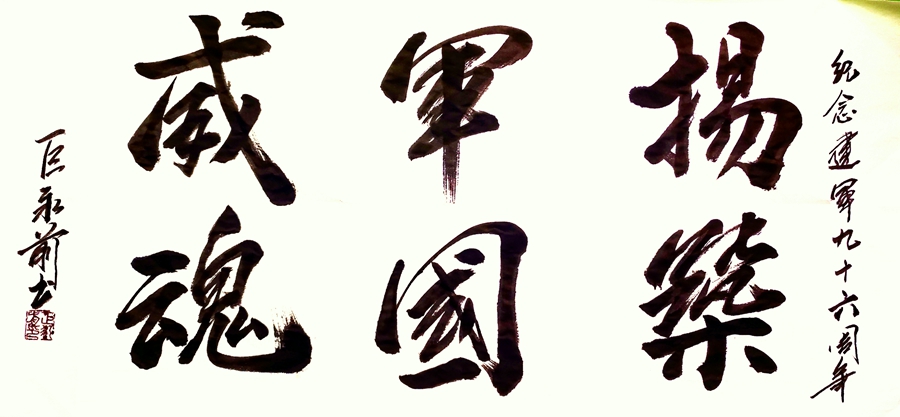 紀念建軍九十六周年
揚軍威
築國魂
巨永前书